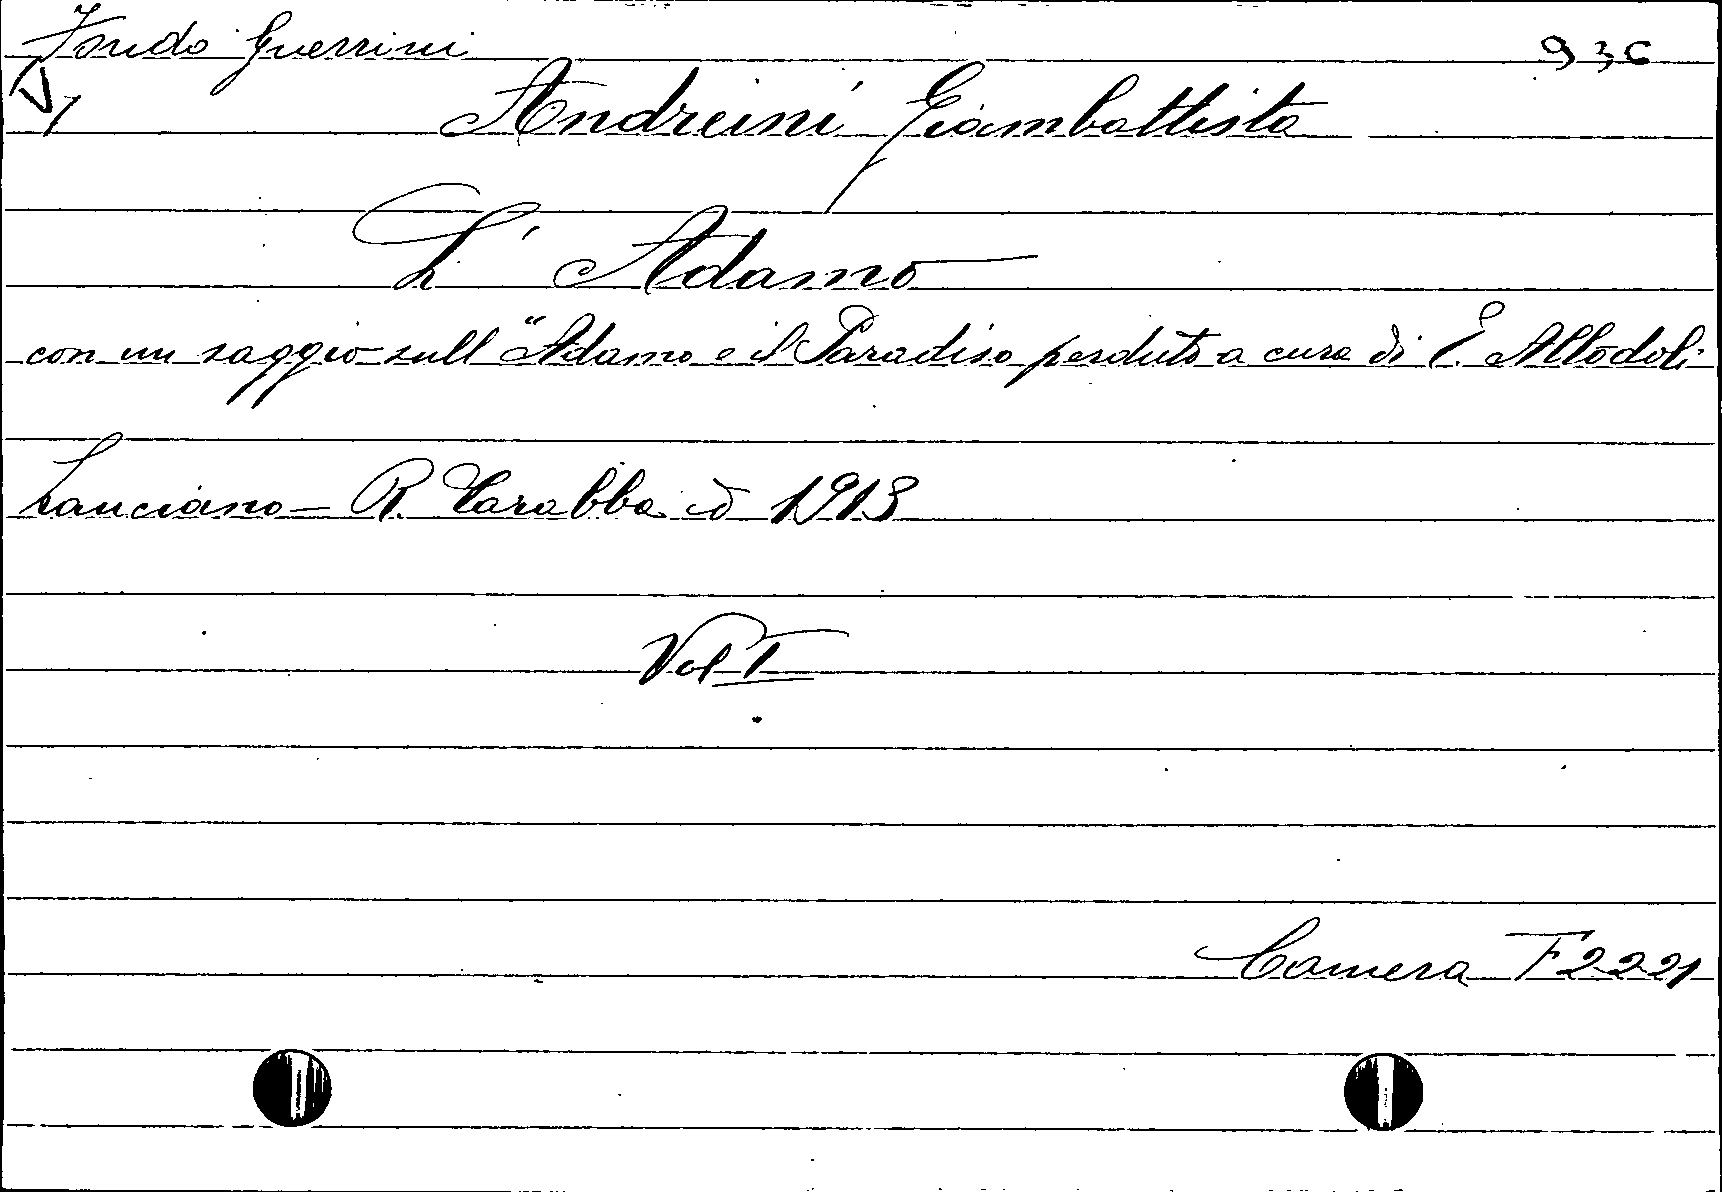 Fondo Guerrini 936
Andreini Giambattista
L'Adamo
con un saggio sull "Adamo e il Paradiso perduto a cura di E. Allodoli
Lanciano - R. Carabba ed 1913
Vol I
Camera F 2221